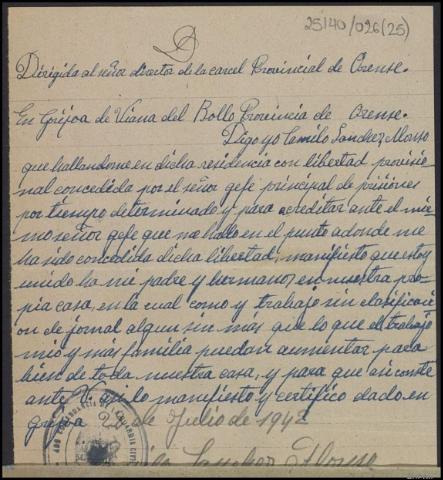 25140/026(25)
D
Dirigida al señor director de la carcel Provincial de Orense.
En Grijoa de Viana del Bollo Provincia de Orense.
Digo yo Camilo Sanchez Alonso
que hallandome en dicha residencia con libertad provisio
nal concedida por el señor gefe principal de prisiones
por tiempo determinado, y para acreditar ante el mis
mo señor gefe que me hallo en el punto adonde me
ha sido concedida dicha libertad; manifiesto que estoy
unido ha mi padre y hermanos en nuestra pro
pia casa, en la cual como y trabajo sin clasificaci
on de jornal algun sin más que lo que el trabajo
mio y más familia puedan aumentar para
bien de toda nuestra casa, y para que asi conste
ante V. aqui lo manifiesto y certifico dado en
Grijoa de Julio de 1942
Sanchez Alonso
GUARDIA CIVIL